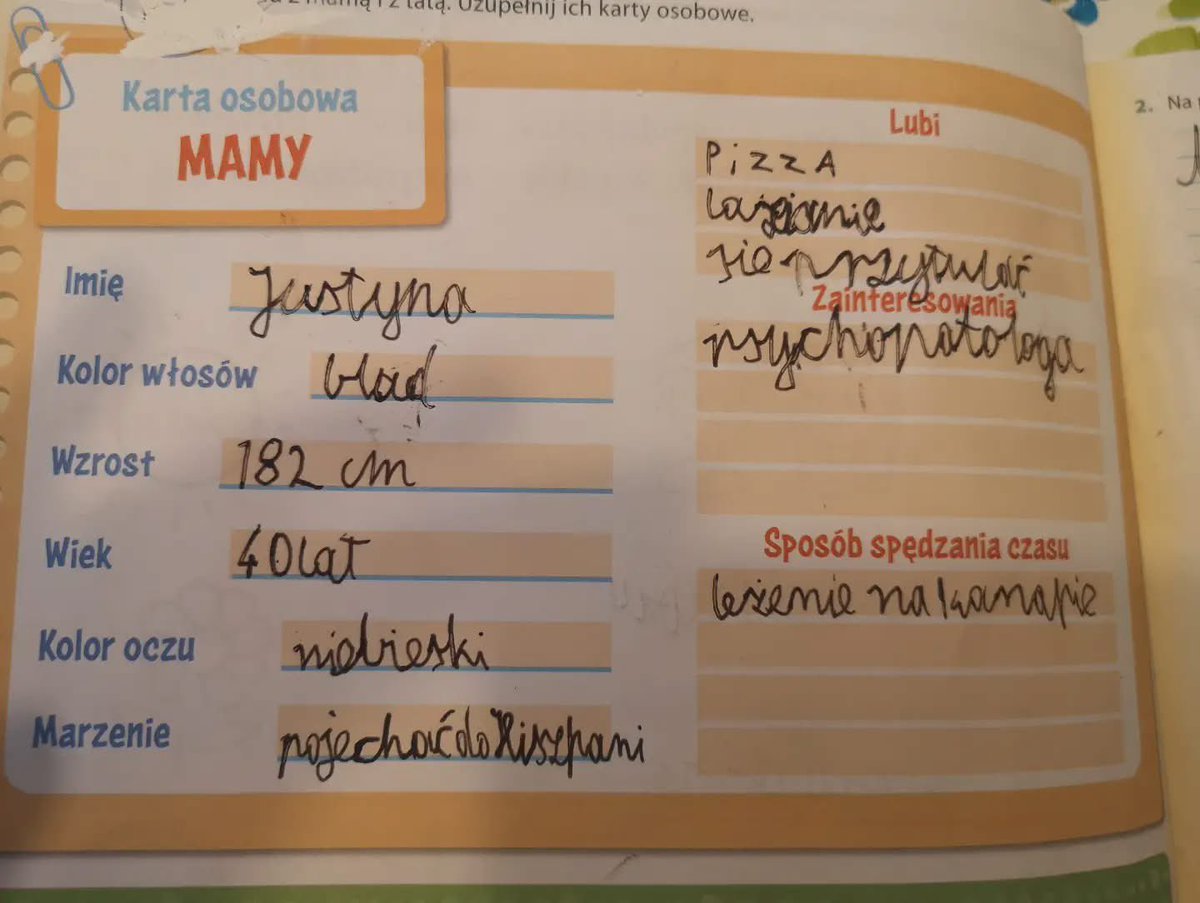 z mamą i z tatą. Uzupełnij ich karty osobowe.
Karta osobowa
MAMY
Imię Justyna
Kolor włosów bląd
Wzrost 182 cm
Wiek 40 lat
Kolor oczu niebieski
Marzenie pojechać do Hiszpani
Lubi
PizzA
sie przytulać
Zainteresowania
psychopatologa
Sposób spędzania czasu
leżenie na kanapie
2. Na